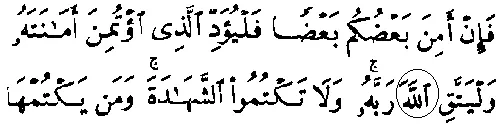 فَإِنْ أَمِنَ بَعْضُكُم بَعْضًا فَلْيُؤَدِّ ٱلَّذِى ٱؤْتُمِنَ أَمَـٰنَتَهُۥ
وَلْيَتَّقِ ٱللَّهَ رَبَّهُۥ ۗ وَلَا تَكْتُمُوا۟ ٱلشَّهَـٰدَةَ ۚ وَمَن يَكْتُمْهَا